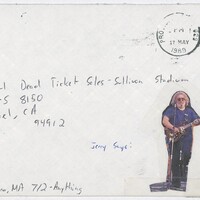 PRO
PM
17 MAY
1989
Dead Ticket Sales - Sullivan Stadium
S 8150
el, CA
94912
Jerry Says:
MA 7/2 - Anything